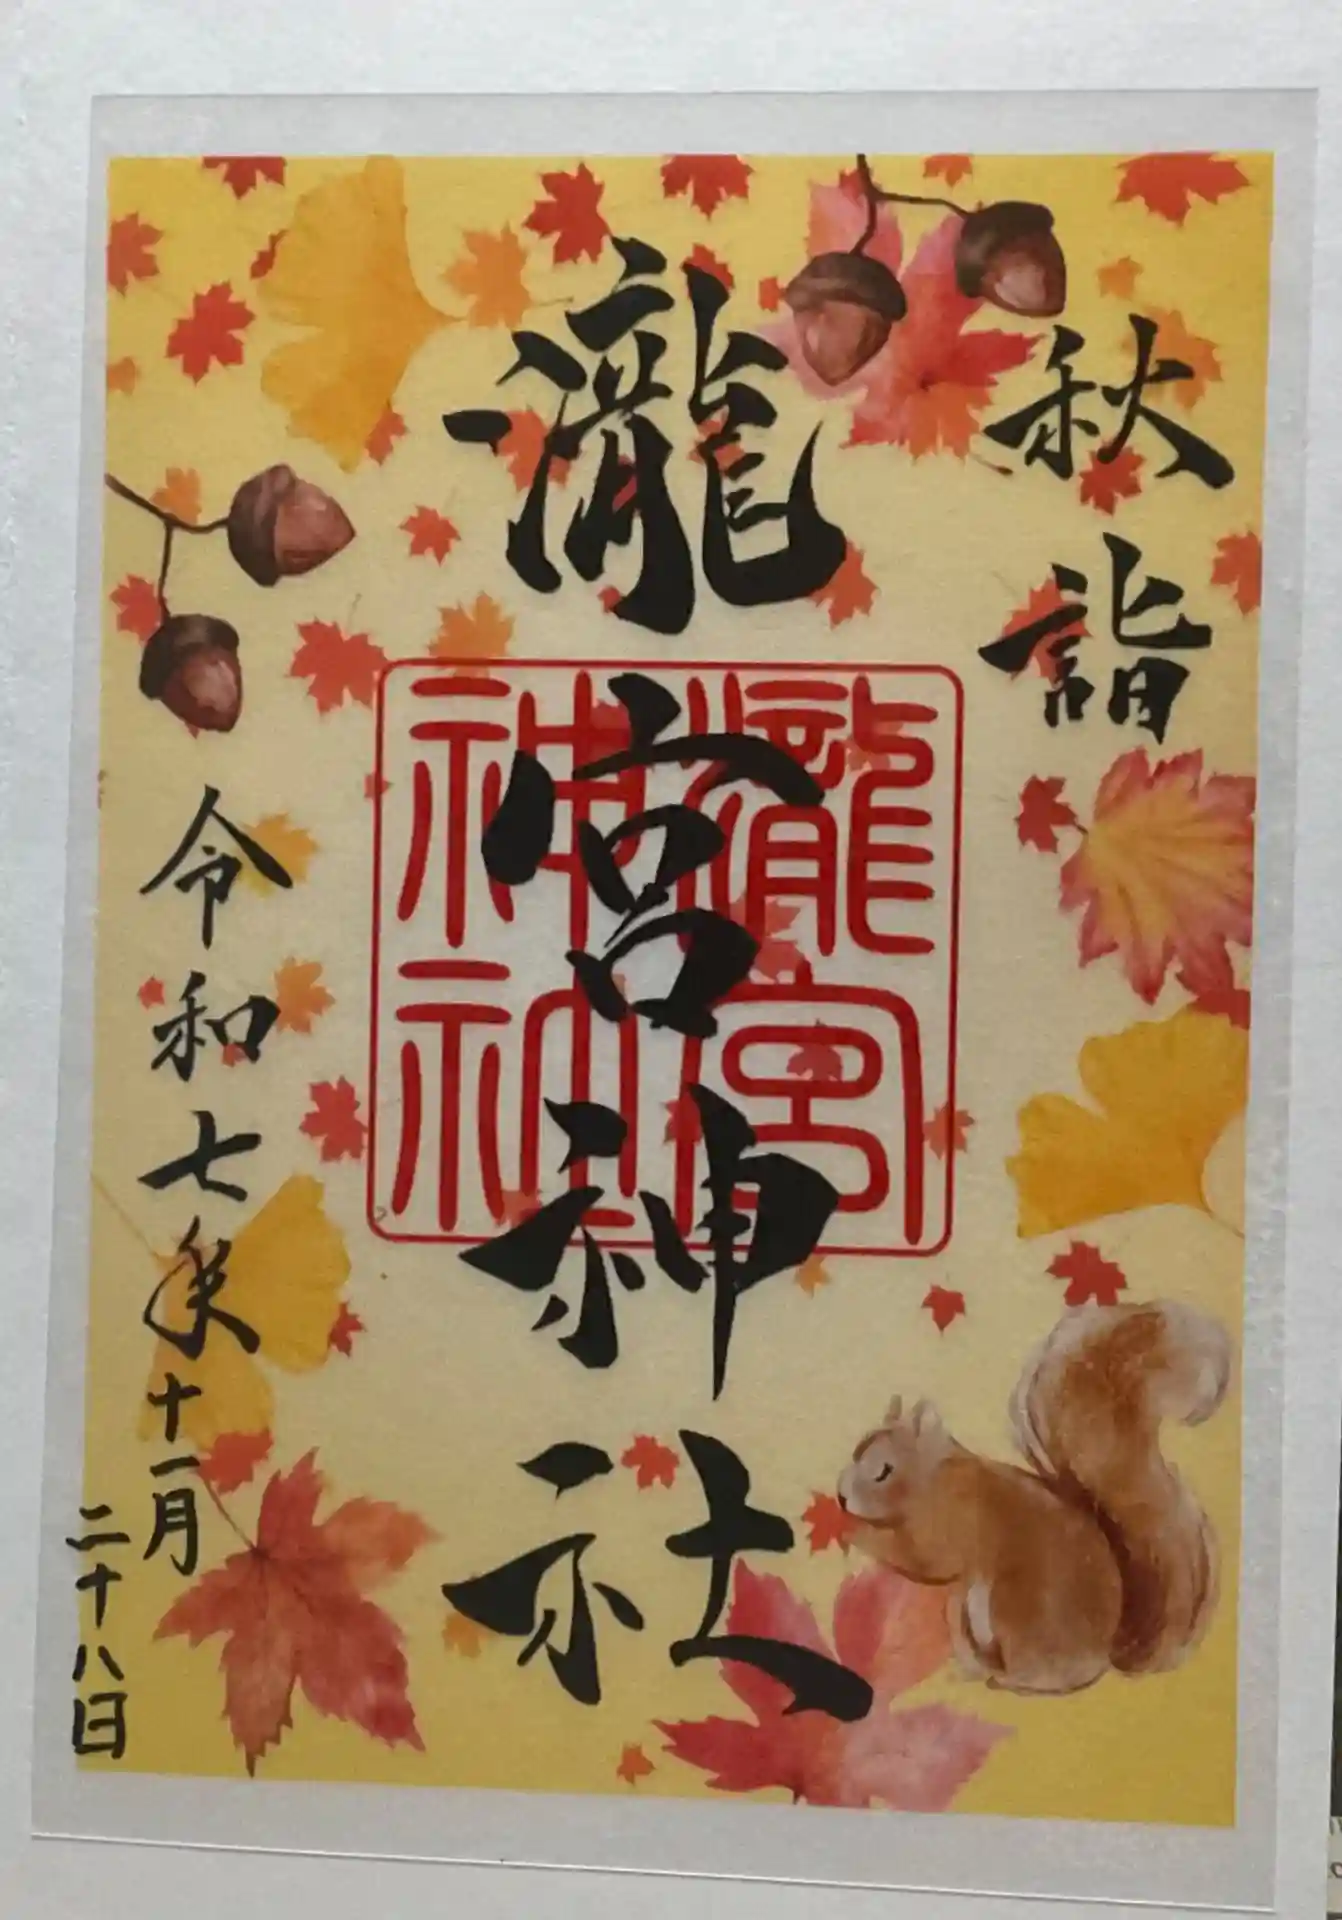 秋詣
瀧宮神社
瀧宮
神社
令和七年十一月
二十八日